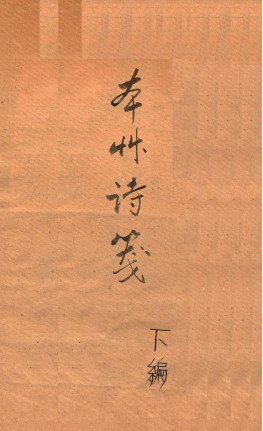 本艸诗笺
下编